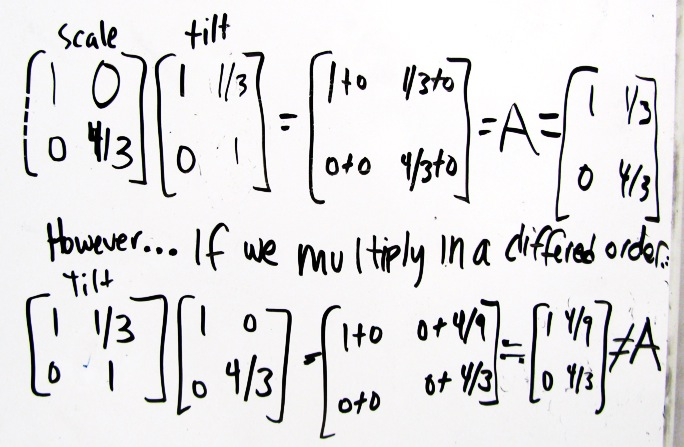 scale tilt
[1 0; 0 4/3] [1 1/3; 0 1] = [1+0 1/3+0; 0+0 4/3+0] = A = [1 1/3; 0 4/3]
However... If we multiply in a differed order..
tilt
[1 1/3; 0 1] [1 0; 0 4/3] = [1+0 0+4/9; 0+0 0+4/3] = [1 4/9; 0 4/3] ≠ A